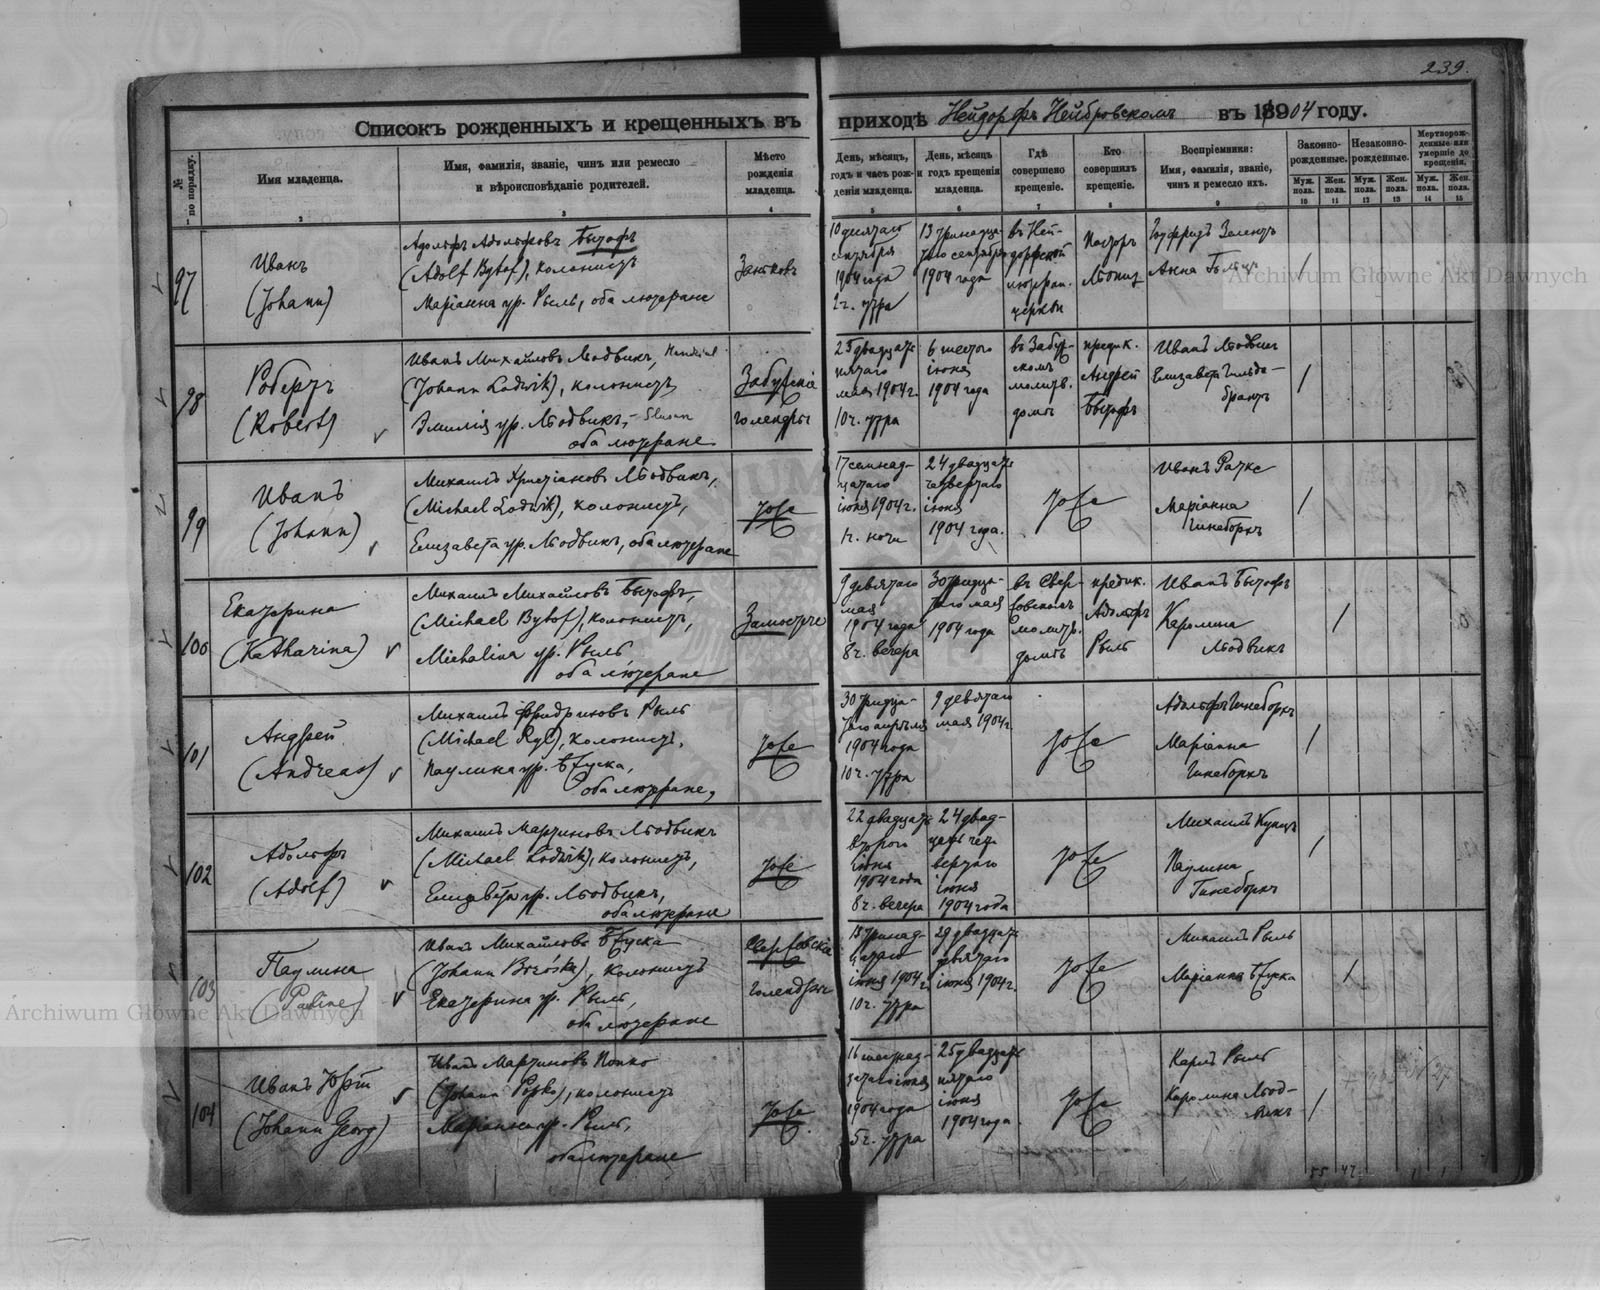 239.
Списокъ рожденныхъ и крещенныхъ въ приходѣ Нейдорфъ Нейбровскомъ въ 1904 году.
№ по порядку.
Имя младенца.
Имя, фамилія, званіе, чинъ или ремесло и вѣроисповѣданіе родителей.
Мѣсто рожденія младенца.
День, мѣсяцъ, годъ и часъ рожденія младенца.
День, мѣсяцъ и годъ крещенія младенца.
Гдѣ совершено крещеніе.
Кто совершилъ крещеніе.
Воспріемники: Имя, фамилія, званіе, чинъ и ремесло ихъ.
Законнорожденные.
Незаконнорожденные.
Мертворожденные или умершіе до крещенія.
Муж. пола.
Жен. пола.
Муж. пола.
Жен. пола.
Муж. пола.
Жен. пола.
2 3 4 5 6 7 8 9 10 11 12 13 14 15
97
Иванъ
(Johann)
Адольфъ Адольфовъ Бытофъ
(Adolf Bytof), колонистъ
Маріанна ур. Рыль, оба лютеране
10 десятаго
сентября
1904 года
2 ч. утра
13 тринадца-
таго сентября
1904 года
въ Ней-
дорфской
лютеран.
церкви
Пасторъ
Анна
98
Робертъ
(Robert)
Иванъ Михайловъ Людвикъ,
(Johann Ludwik), колонистъ,
Эмилія ур. Людвикъ,
оба лютеране.
Забужскіе
голендры
25 двадцать
пятаго
мая 1904 г.
10 ч. утра
6 шестого
іюня
1904 года
въ Забуж-
скомъ
молитв.
домѣ
предик.
Андрей
Бытофъ
Иванъ Людвикъ
Елизавета Гильде-
брантъ
99
Иванъ
(Johann)
Михаилъ Христіановъ Людвикъ,
(Michael Ludwik), колонистъ,
Елизавета ур. Людвикъ, оба лютеране
Тоже
17 семнад-
цатаго
іюня 1904 г.
1 ч. ночи
24 двадцать
четвертаго
іюня
1904 года.
Тоже
Иванъ Раткe
Маріанна
Гинеборхъ
100
Екатерина
(Katharina)
Михаилъ Михайловъ Бытофъ,
(Michael Bytof), колонистъ,
Michalina ур. Рыль
оба лютеране
Замостче
9 девятаго
мая
1904 года
8 ч. вечера
30 тридца-
таго мая
1904 года
въ Свер-
жовскомъ
молитв.
домѣ
предик.
Адольфъ
Рыль
Иванъ Бытофъ
Каролина
Людвикъ
101
Андрей
(Andreas)
Михаилъ Фридриховъ Рыль
(Michael Ryl), колонистъ,
Паулина ур. Бžуска,
оба лютеране,
Тоже
30 тридца-
таго апрѣля
1904 года
10 ч. утра
9 девятаго
мая 1904 г.
Тоже
Адольфъ Гинеборхъ
Маріанна
Гинеборхъ
102
Адольфъ
(Adolf)
Михаилъ Мартиновъ Людвикъ
(Michael Ludwik), колонистъ,
Елизавета ур. Людвикъ,
оба лютеране
Тоже
22 двадцать
второго
іюня
1904 года
8 ч. вечера
24 двад-
цать чет-
вертаго
іюня
1904 года
Тоже
Михаилъ Кунцъ
Паулина
Гинеборхъ
103
Паулина
(Pauline)
Иванъ Михайловъ Бžуска
(Johann Brzóska), колонистъ
Екатерина ур. Рыль,
оба лютеране
Свержовскіе
голендры
13 тринад-
цатаго
іюня 1904 г.
10 ч. утра
29 двадцать
девятаго
іюня 1904 г.
Тоже
Михаилъ Рыль
Маріанна Бžуска
104
Иванъ Юрій
(Johann Georg)
Иванъ Мартиновъ Попко
(Johann Popko), колонистъ
Маріанна ур. Рыль,
оба лютеране
Тоже
16 шестнад-
цатаго іюня
1904 года
5 ч. утра
25 двадцать
пятаго
іюня
1904 года.
Тоже
Карлъ Рыль
Каролина Люд-
викъ
55 42 1 1
Archiwum Główne Akt Dawnych
Archiwum Główne Akt Dawnych